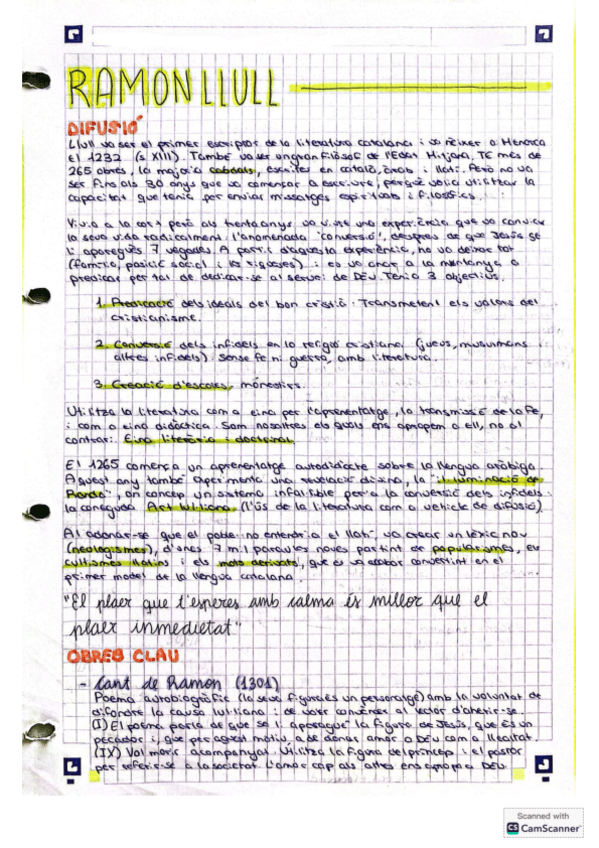 RAMON LLULL
DIFUSIÓ
Llull va ser el primer escriptor de la literatura catalana i va néixer a Menorca
El 1232 (s XIII). També va ser un gran filòsof de l'Edat Mitjana. Té més de
265 obres, la majoria cabdals, escrites en català, àrab i llatí. Però no va
ser fins als 30 anys que va començar a escriure, perquè volia utilitzar la
capacitat que tenia per enviar missatges espirituals i filosòfics.
Vivia a la cort però als trenta anys va viure una experiència que va canviar
la seva vida radicalment, l'anomenada "conversió", després de que Jesús se
li aparegués 7 vegades. A partir d'aquesta experiència, ho va deixar tot
(família, posició social i les riqueses) i es va anar a la muntanya a
predicar per tal de dedicar-se al servei de Déu. Tenia 3 objectius.
1. Predicació dels ideals del bon cristià. Transmetent els valors del
cristianisme.
2. Conversió dels infidels en la religió cristiana (jueus, musulmans i
altres infidels) sense fe ni guerra, amb literatura.
3. Creació d'escoles, monestirs.
Utilitza la literatura com a eina per l'aprenentatge, la transmissió de la Fe,
i com a eina didàctica. Som nosaltres els quals ens apropem a ell, no al
contrari. Eina literària i doctrinal.
El 1265 comença un aprenentatge autodidacte sobre la llengua aràbiga.
Aquest any també experimenta una revelació divina, la "il·luminació de
Randa", on concep un sistema infal·lible per a la conversió dels infidels:
la coneguda Art lul·liana. (l'ús de la literatura com a vehicle de difusió)
Al adonar-se que el poble no entendria el llatí, va crear un lèxic nou
(neologismes), d'unes 7 mil paraules noves partint de popularismes, en
cultismes llatins i els mots derivats, que es va acabar convertint en el
primer model de la llengua catalana.
"El plaer que t'esperes amb calma és millor que el
plaer inmedietat"
OBRES CLAU
- Cant de Ramon (1301)
Poema autobiogràfic (la seva figura és un personatge) amb la voluntat de
difondre la causa lul·liana i de voler convèncer al lector d'aherir-se.
(I) El poema parla de que se li "aparegué" la figura de Jesús, que és un
pecador i, que per aquest motiu, a de donar amar a Déu com a lleialtat.
(IV) Vol morir acompanyat. Utilitza la figura del príncep i el pastor
per referir-se a la societat. L'amor cap als altres ens apropa a Déu
Scanned with
CS CamScanner